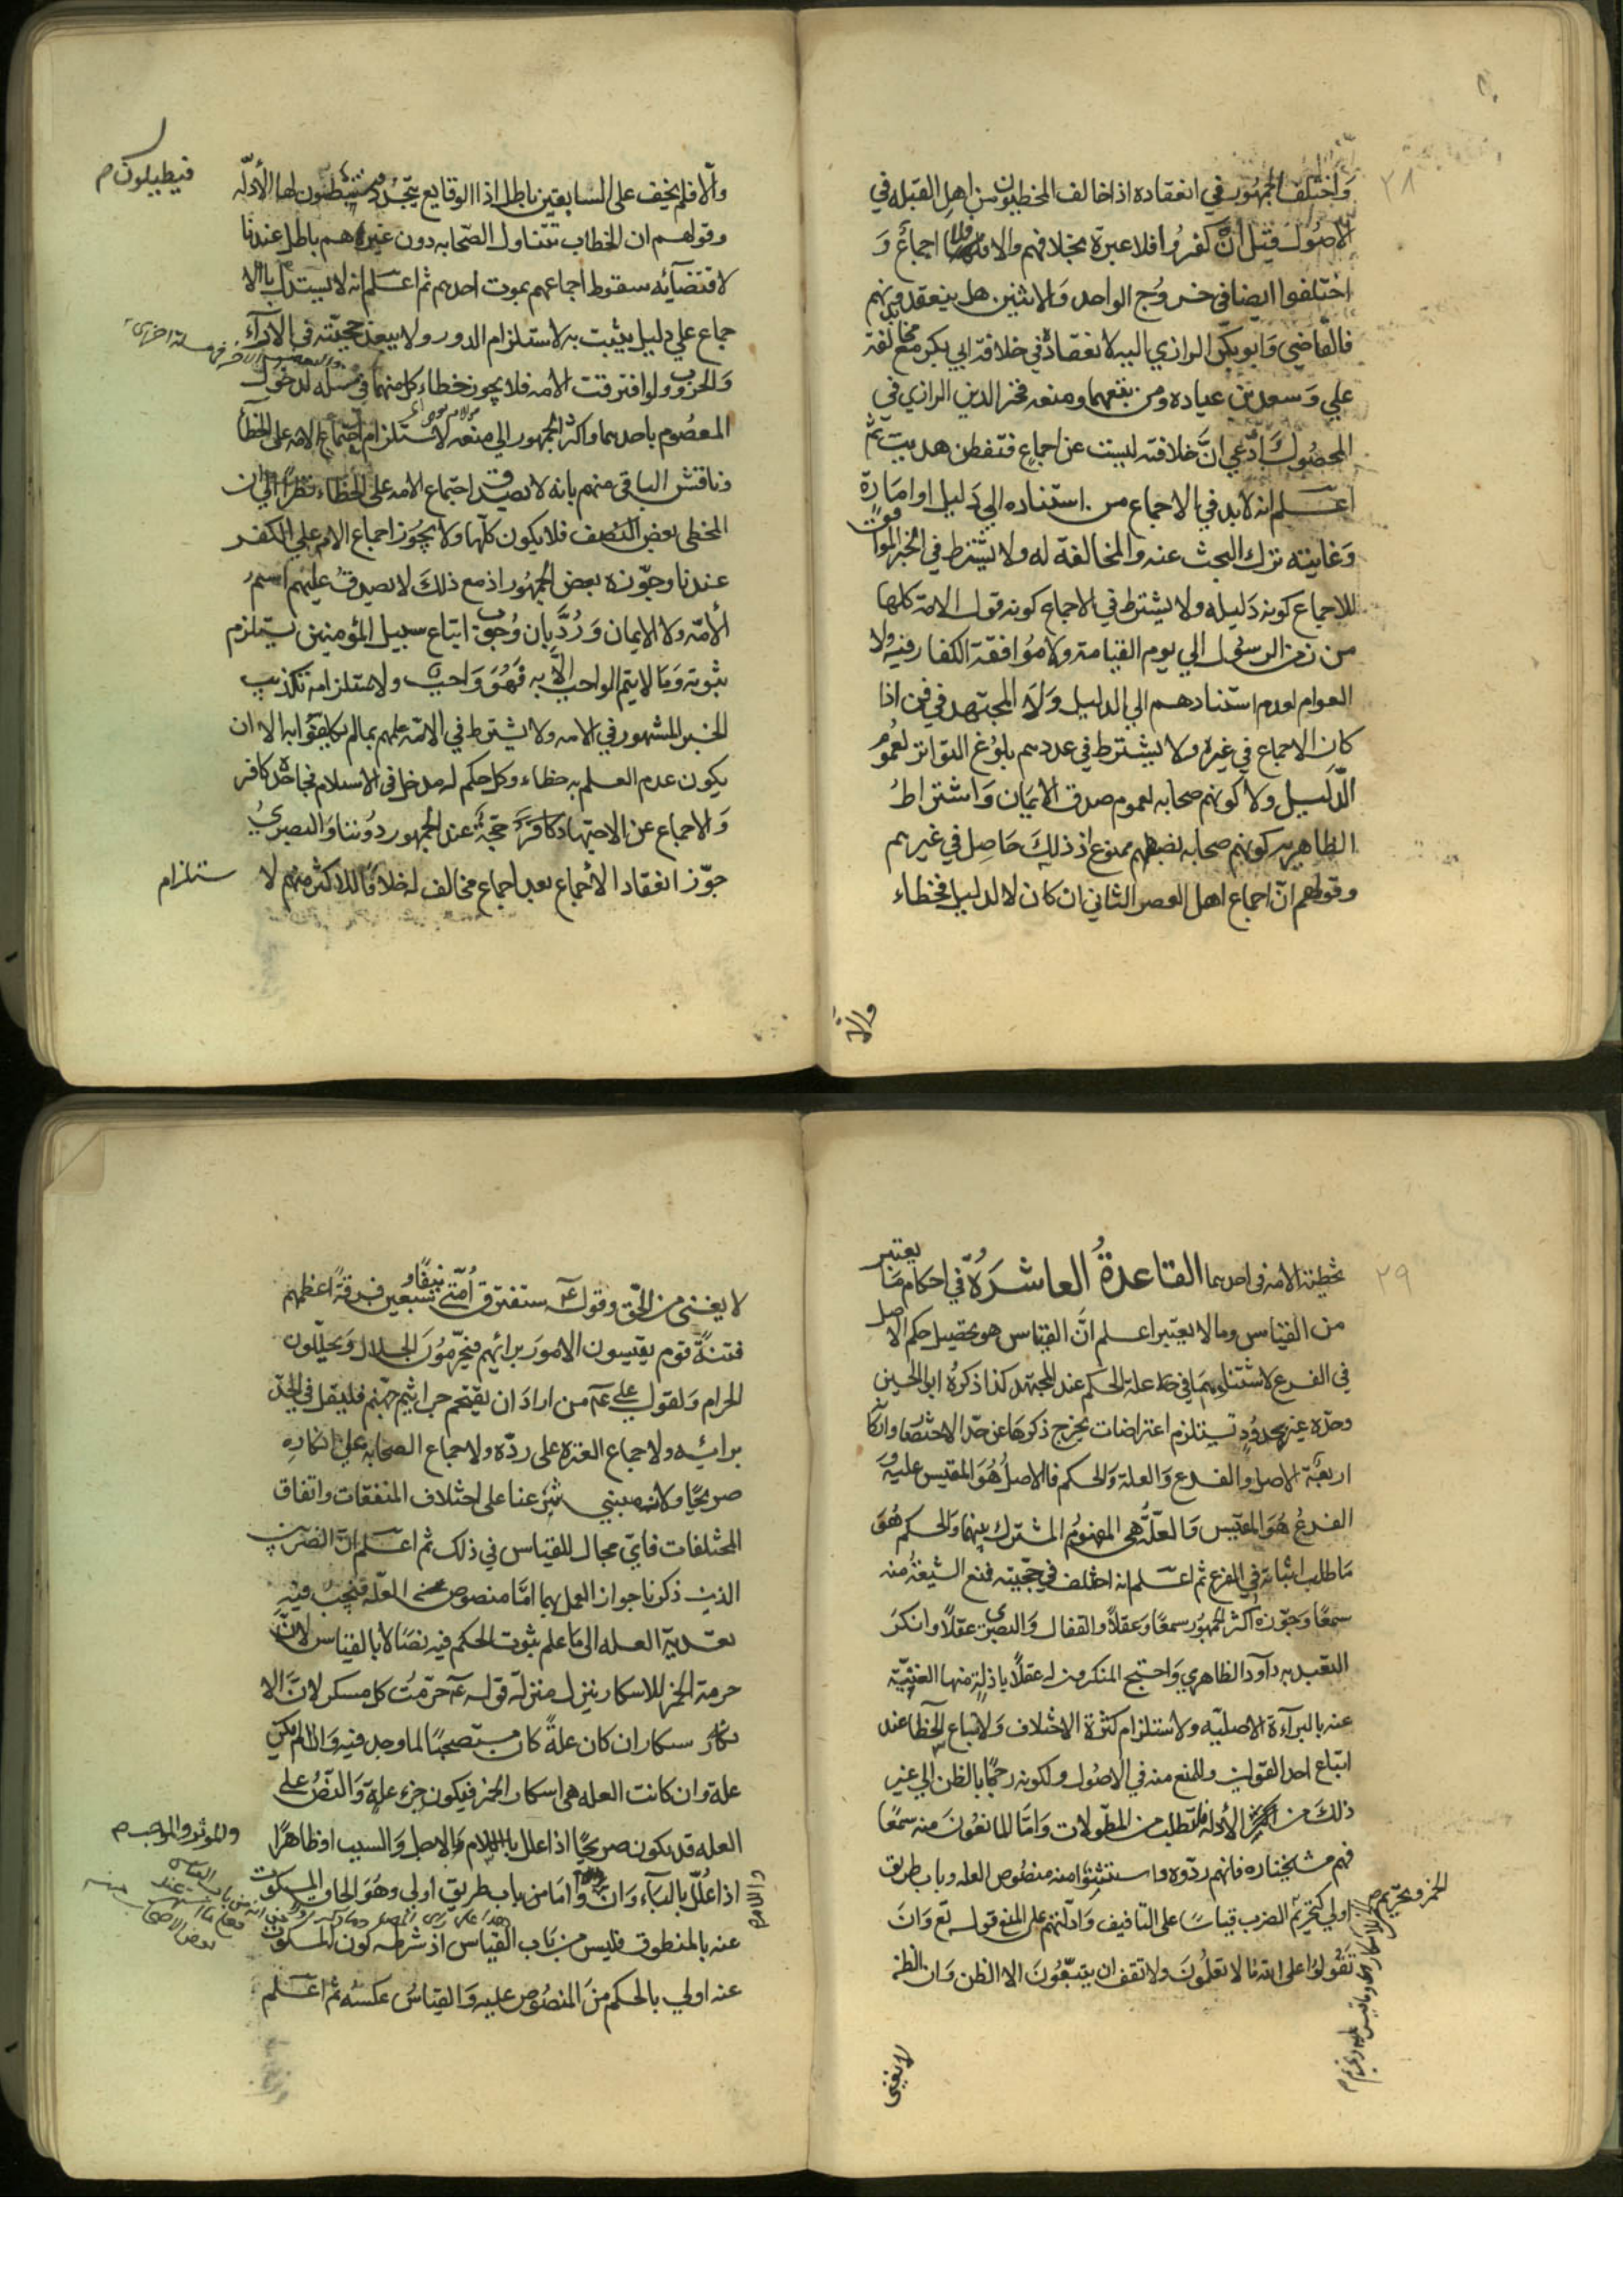 ٢٨
واختلف الجمهور في انعقاده اذا خالف المخطيون من اهل القبله في
الاصول فقيل ان كفروا فلا عبرة بخلافهم والا فلا اجماع و
اختلفوا ايضا في خروج الواحد والاثنين هل ينعقد دونهم
فالقاضي وابوبكر الرازي اليه لانعقاده في خلافة ابي بكر مع مخالفة
علي وسعد بن عباده ومن تبعهما ومنعه فخر الدين الرازي في
المحصول وادّعي انّ خلافته ليست عن اجماع فتفطن هديت ثم
اعلم انه لابد في الاجماع من استناده الي دليل او امارة
وغايته ترك البحث عنه والمخالفة له ولا يشترط في الخبر الموافق
للاجماع كونه دليله ولا يشترط في الاجماع كونه قول الامة كلها
من زمن الرسول الي يوم القيامة ولا موافقة الكفار فيه ولا
العوام لعدم استنادهم الي الدليل ولا المجتهد في فن اذا
كان الاجماع في غيره ولا يشترط في عددهم بلوغ التواتر لعموم
الدّليل ولا كونهم صحابه لعموم صدق الايمان واشتراط
الظاهريه كونهم صحابه لضبطهم ممنوع اذ ذلك حاصل في غيرهم
وقولهم انّ اجماع اهل العصر الثاني ان كان لا لدليل فخطاء
والاّ
والاّ فلم يخف على السابقين باطل اذ الوقايع تتجدد فيستنبطون لها الأدلّه
فيطبلون م
وقولهم ان الخطاب تتناول الصّحابه دون غيرهم باطل عندنا
لاقتضآئه سقوط اجماعهم بموت احدهم ثم اعلم انه لا يستدل بالا
جماع علي دليل يثبت به لاستلزام الدور ولا يبعد حجيّته في الارآء
والحزوب ولو افترقت الامه فلا يجوز خطاء كل منهما في مسئله لدخول
المعصوم باحدهما واكثر الجمهور الي منعه لاستلزام اجتماع الامه على الخطأ
وناقش الباقي منهم بانه لا يصدق اجتماع الامه على الخطاء نظراً الي ان
المخطي بعض النصف فلا يكون كلّها ولا يجوز اجماع الامه علي الكفر
عندنا وجوّزه بعض الجمهور اذ مع ذلك لا يصدق عليهم اسم
الأمّه ولا الايمان وردّ بان وجوب اتباع سبيل المؤمنين يستلزم
ثبوته وما لا يتم الواجب الاّ به فهو واجب ولاستلزامه تكذيب
الخبر المشهور في الامه ولا يشترط في الامّه علمهم بمالم يكلفوا به الا ان
يكون عدم العلم به خطاء وكل حكم له مدخل في الاسلام فجاحده كافر
والاجماع عن الاجتهاد كافر حجّة عند الجمهور دوننا والبصري
جوّز انعقاد الأجماع بعد اجماع مخالف له خلافا للاكثر منهم لا
ستلزام
٢٩
تخطئة الامه في احدهما القاعدة العاشرة في احكام ما يعتبر
من القياس وما لا يعتبر اعلم انّ القياس هو تحصيل حكم الاصل
في الفرع لاشتباههما في علة الحكم عند المجتهد كذا ذكره ابو الحسين
وحدّه غيره بحدود تستلزم اعتراضات يخرج ذكرها عن حدّ الاختصار واركانه
اربعة الاصل والفرع والعلة والحكم فالاصل هو المقيس عليه و
الفرع هو المقيس والعلّة هي المفهوم المشترك بينهما والحكم هو
ما طلب اثباته في الفرع ثم اعلم انه اختلف في حجّيته فمنع الشيعة منه
سمعًا وجوّزه اكثر الجمهور سمعًا وعقلاً والقفال والبصري عقلاً وانكر
التعبد به داود الظاهري واحتج المنكرون له عقلاً بادلة منها الغنية
عنه بالبراءة الاصليّه ولاستلزام كثرة الاختلاف ولاتباع الخطا عند
اتباع احد القولين وللمنع منه في الاصول ولكونه رجمًا بالظن الي غير
ذلك من الأدله فلتطلب من المطولات وامّا المانعون منه سمعًا
فهم مشيختنا ره فانهم ردّوه واستثنوا منه منصوص العله وباب طريق
اولي كتحريم الضرب قياسًا على التافيف وادلّتهم علي المنع قوله تع وان
تقولوا علي الله ما لا تعلمون ولا تقف ان يتبعون الا الظن وان الظن
لا يغني
لا يغني من الحق وقوله عم ستفترق امّتي نيفًا وسبعين فرقة اعظمهم
فتنةً قوم يقيسون الامور برائهم فيحرّمون الحلال ويحلّلون
الحرام ولقول علي عم من اراد ان يقتحم جراثيم جهنم فليقل في الجدّ
برائه ولاجماع العترة على ردّه ولاجماع الصحابه علي انكاره
صريحًا ولانه مبني شرعنا على اختلاف المتفقات واتفاق
المختلفات فايّ مجال للقياس في ذلك ثم اعلم انّ الضربين
الذين ذكرنا جواز العمل بهما امّا منصوص العلّه فيجب فيه
تعدية العله الي ما علم ثبوت الحكم فيه نصًا لا بالقياس لانّ
حرمة الخمر للاسكار ينزل منزلة قوله عم حرّمت كل مسكر لانّ الا
سكار ان كان علةً كان مستصحبًا لما وجد فيه وان لم يكن
علة وان كانت العله هي اسكار الخمر فيكون جزء علة والنصّ علي
العله قد يكون صريحًا اذا علل باللام والاجل والسبب او ظاهرًا
والموثر والموجب م
اذا علّل بالباء وان واما من باب طريق اولي وهو الحاق المسكوت
عنه بالمنطوق فليس من باب القياس اذ شرطه كون المسكوت
عنه اولي بالحكم من المنصوص عليه والقياس عكسه ثم اعلم